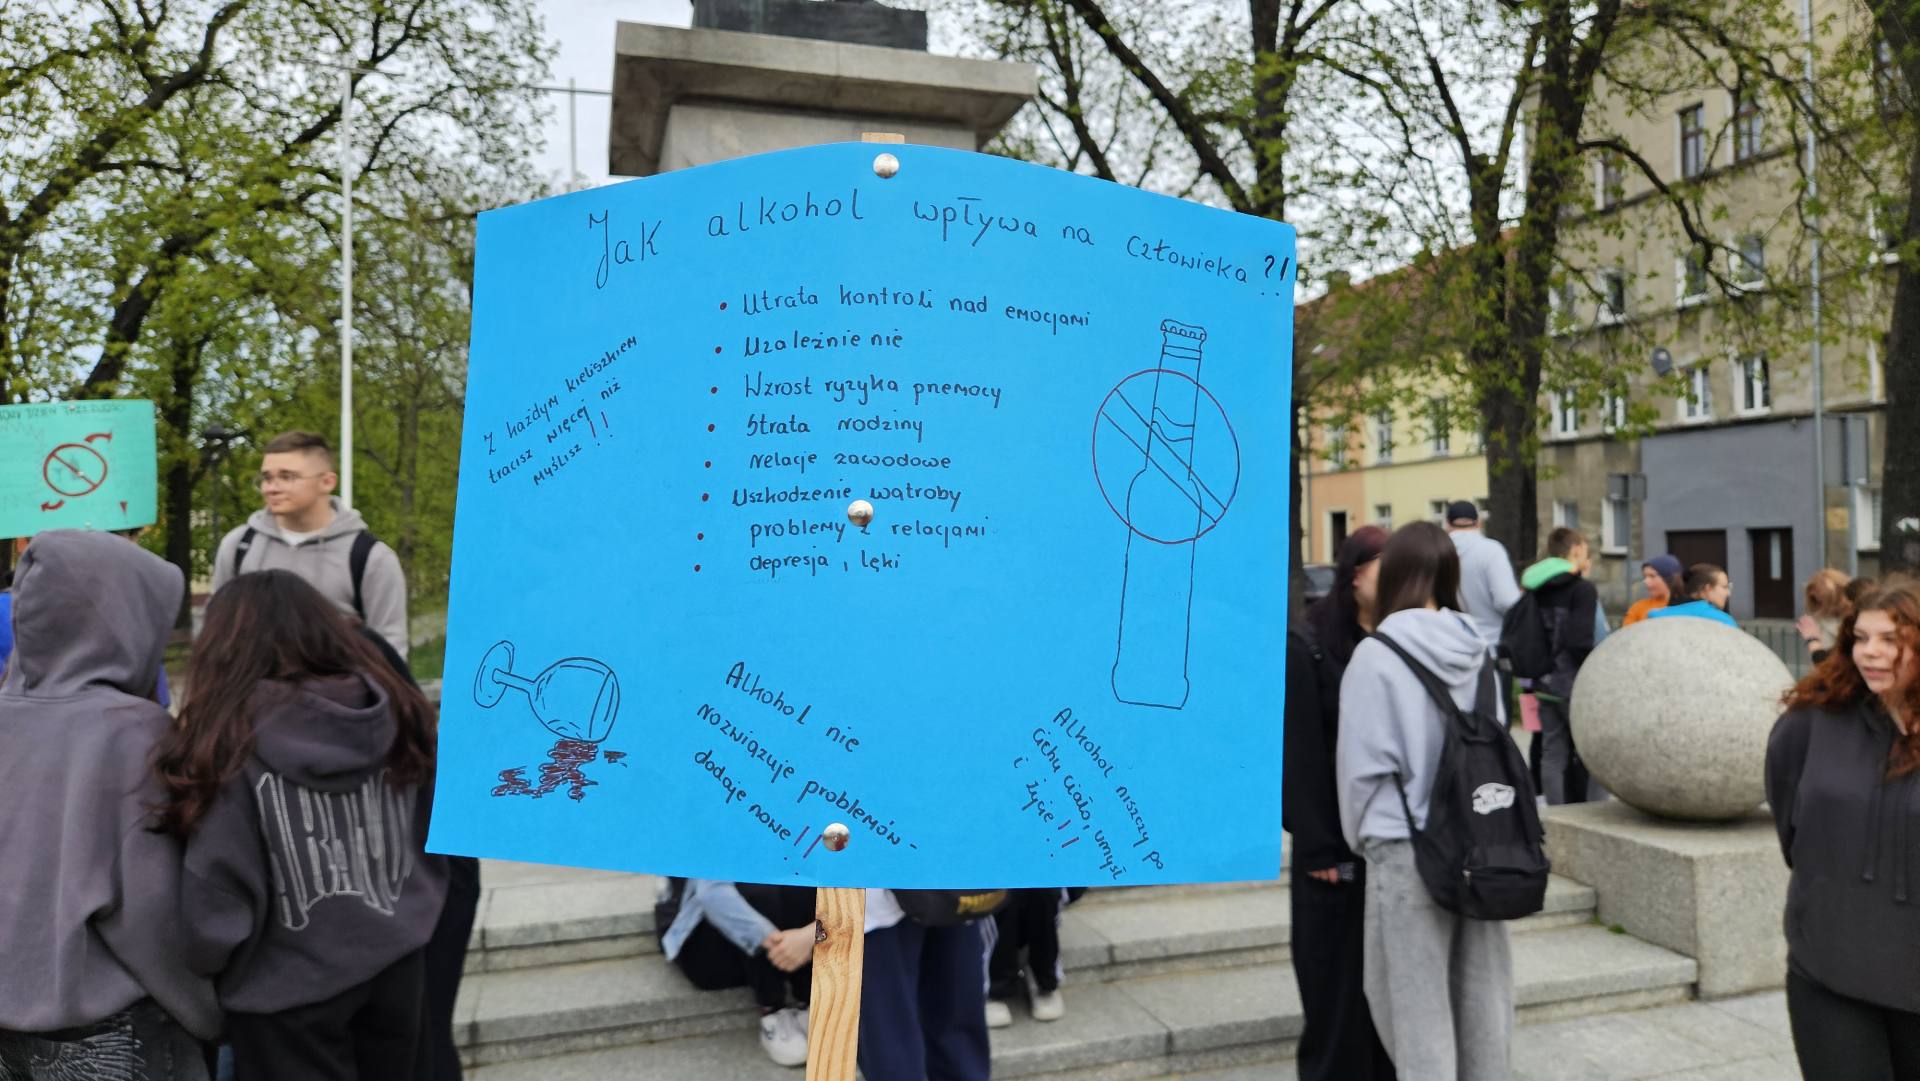 Jak alkohol wpływa na człowieka ?!
• Utrata kontroli nad emocjami
• Uzależnie nie
• Wzrost ryzyka pnemocy
• Strata rodziny
• relacje zawodowe
• Uszkodzenie wątroby
• problemy z relacjami
• depresja, lęki
Z każdym kieliszkiem
tracisz więcej niż
myślisz !!
Alkohol nie
rozwiązuje problemów -
dodaje nowe !!
Alkohol niszczy po
cichu ciało, umysł
i życie !!